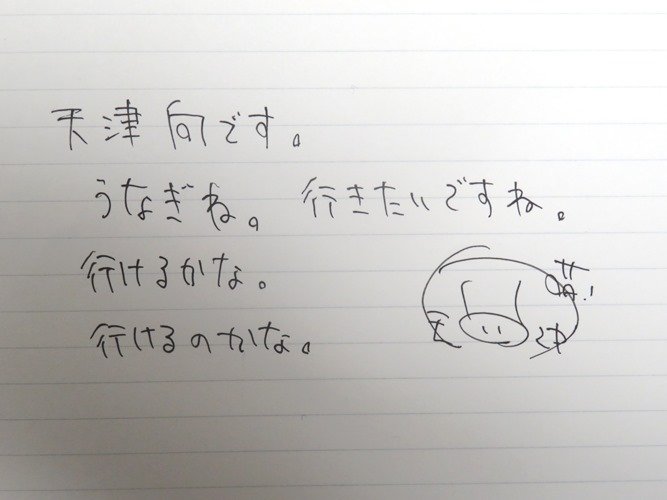 天津向です。
うなぎね。 行きたいですね。
行けるかな。
行けるのかな。